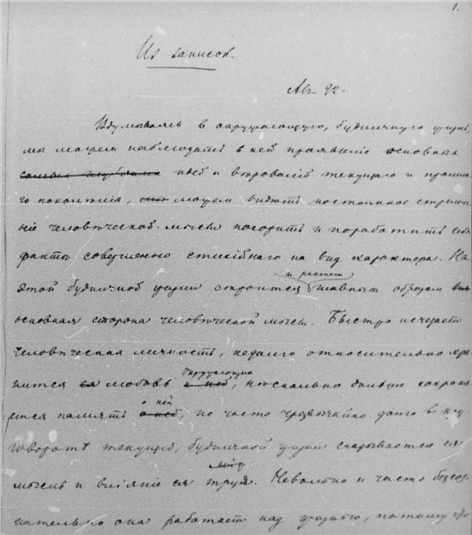 1.
Из записок.
Авг 92.
Вдумываясь в окружающую, будничную жизнь,
мы можем наблюдать в ней проявленiе основных
идей и верованiй текущаго и прошла-
го поколѣнiя, можем видѣть постоянное стремле-
нiе человѣческой мысли покорить и поработить себѣ
факты совершенно стихiйнаго на вид характера. На
и растет
этой будничной жизни строится главным образом
основная сторона человѣческой мысли. Быстро исчезает
человѣческая личность, недолго относительно хра-
окружающих
нится любовь к ней, несколько дольше сохра
о ней
яется память о ней, но часто чрезвычайно долго в кру
говоротѣ текущей, будничной жизни сказывается ея
мысль и влiянiе ея труда. Невольно и часто безсо
знательно она работает над жизнью, потому что